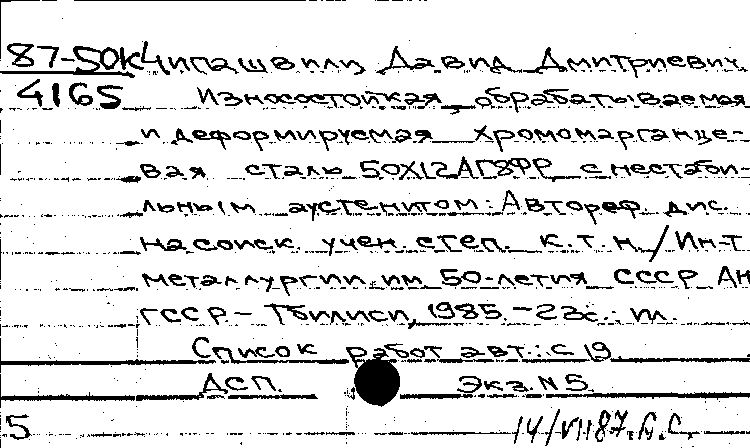 87-50к Чипашвили Давид Дмитриевич.
4165 Износостойкая, обрабатываемая
и деформируемая хромомарганце-
вая сталь 50Х12АГ8ФР с нестаби-
льным аустенитом: Автореф. дис.
на соиск. учен. степ. к.т.н./Ин-т
металлургии им 50-летия СССР АН
ГССР - Тбилиси, 1985. - 22с.: ил.
Список работ авт.: с 19.
ДСП. Экз. N 5
5 14/VII 87.